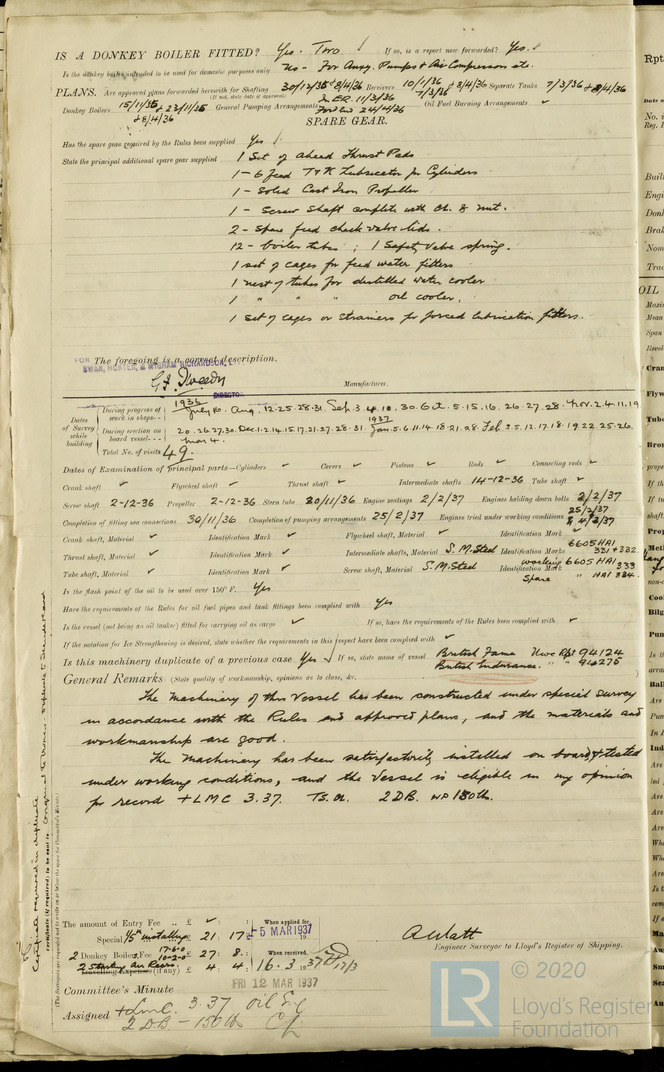 IS A DONKEY BOILER FITTED? Yes. Two If so, is a report now forwarded? Yes.
Is the donkey boiler intended to be used for domestic purposes only No - For Auxy. Pumps & Air Compressors etc.
PLANS. Are approved plans forwarded herewith for Shafting 30/12/35 + 8/4/36 Receivers 10/1/36 7/3/36 + 8/4/36 Separate Tanks 7/3/36 + 8/4/36
(If not, state date of approval)
Donkey Boilers 15/11/35 + 23/11/35 + 8/4/36 General Pumping Arrangements In E.R. 11/3/36 24/4/36 Oil Fuel Burning Arrangements ✓
SPARE GEAR.
Has the spare gear required by the Rules been supplied Yes
State the principal additional spare gear supplied 1 Set of ahead Thrust Pads
1 - 6 feed T & K Lubricator for Cylinders
1 - Solid Cast Iron Propeller
1 - Screw Shaft complete with Ch. & nut.
2 - Spare feed check valve lids.
12 - boiler tubes ; 1 Safety Valve spring.
1 set of cages for feed water filters
1 nest of tubes for distilled water cooler
1 " " " oil cooler.
1 Set of cages or strainers for forced lubrication filters.
The foregoing is a correct description.
FOR SWAN, HUNTER, & WIGHAM RICHARDSON, L
DIRECTOR
Manufacturer.
Dates of Survey while building
During progress of work in shops - - 1936 July 10. Aug. 12.25.28.31 Sept. 3 4.10.30. Oct. 5.15.16.26.27.28. Nov. 2.4.11.19
During erection on board vessel - - - 20.26.27.30. Dec. 1.2.14.15.17.21.27.28.31. 1937 Jan. 5.6.11.14.18.21.28. Feb. 2.5.12.17.18.19.22.25.26. Mar 4.
Total No. of visits 49.
Dates of Examination of principal parts—Cylinders ✓ Covers ✓ Pistons ✓ Rods ✓ Connecting rods ✓
Crank shaft ✓ Flywheel shaft ✓ Thrust shaft ✓ Intermediate shafts 14-12-36 Tube shaft ✓
Screw shaft 2-12-36 Propeller 2-12-36 Stern tube 20/11/36 Engine seatings 2/2/37 Engines holding down bolts 2/2/37
Completion of fitting sea connections 30/11/36 Completion of pumping arrangements 25/2/37 Engines tried under working conditions 25/2/37 & 4/3/37
Crank shaft, Material ✓ Identification Mark ✓ Flywheel shaft, Material ✓ Identification Mark ✓
Thrust shaft, Material ✓ Identification Mark ✓ Intermediate shafts, Material S.M. Steel Identification Marks 6605 HAI 331 + 332
Tube shaft, Material ✓ Identification Mark ✓ Screw shaft, Material S.M. Steel Identification Mark working 6605 HAI 333
spare " HAI 334.
Is the flash point of the oil to be used over 150° F. Yes
Have the requirements of the Rules for oil fuel pipes and tank fittings been complied with Yes
Is the vessel (not being an oil tanker) fitted for carrying oil as cargo ✓ If so, have the requirements of the Rules been complied with ✓
If the notation for Ice Strengthening is desired, state whether the requirements in this respect have been complied with ✓
Is this machinery duplicate of a previous case Yes If so, state name of vessel British Fame Nwc Rpt 94124
British Endurance. " " 94275
General Remarks (State quality of workmanship, opinions as to class, &c.
The Machinery of this Vessel has been constructed under special survey
in accordance with the Rules and approved plans, and the materials and
workmanship are good.
The Machinery has been satisfactorily installed on board, & tested
under working conditions, and the Vessel is eligible in my opinion
for record + LMC 3.37. TS. OL. 2DB. WP 150lb.
The amount of Entry Fee .. £ ✓ : : When applied for
Special 1/5th installing 21 : 17 : 5 MAR 1937
2 Donkey Boiler Fee 17-6-0 10-2-0 £ 27 : 8 : When received,
2 Starting Air Recrs. (if any) £ 4 : 4 : 16.3.1937
A Watt
Engineer Surveyor to Lloyd's Register of Shipping.
Committee's Minute FRI 12 MAR 1937
Assigned + Lmc 3.37 Oil Eng
2 DB - 150 lb CL
© 2020
LR Lloyd's Register
Foundation